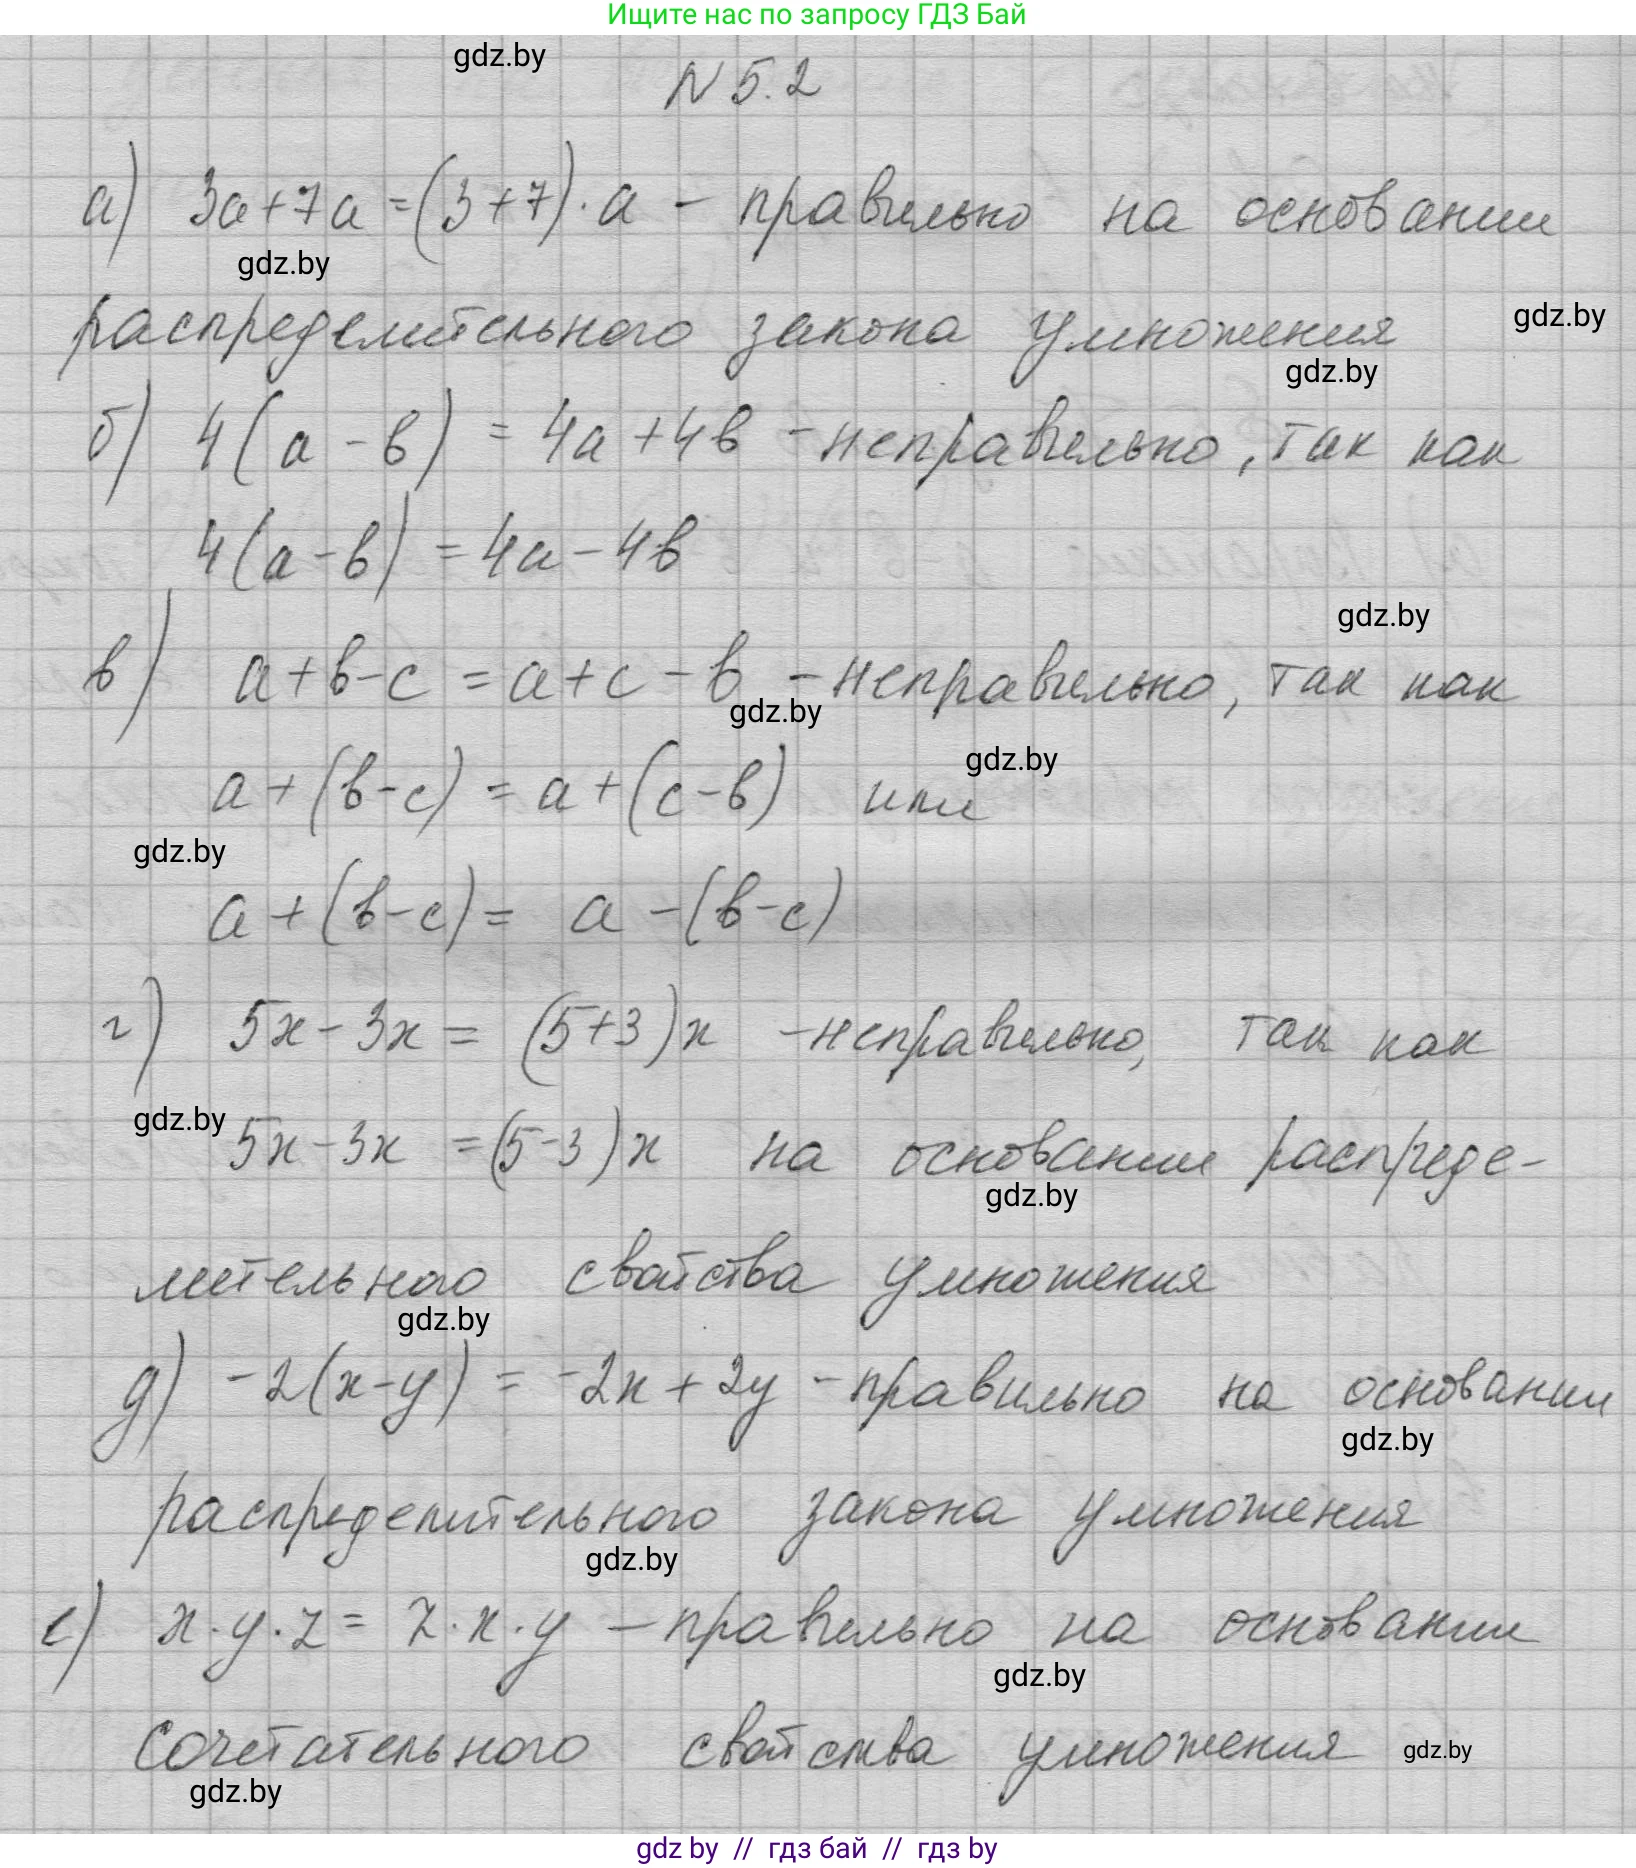 Ищите нас по запросу ГДЗ Бай
gdz.by
N 5.2
а) 3a+7a=(3+7)·a - правильно на основании
gdz.by
распределительного закона умножения
gdz.by
gdz.by
б) 4(a-b) = 4a+4b - неправильно, так как
4(a-b) = 4a-4b
gdz.by
в) a+b-c = a+c-b - неправильно, так как
gdz.by
a+(b-c) = a+(c-b) или
gdz.by
gdz.by
a+(b-c) = a-(b-c)
г) 5x-3x = (5+3)x - неправильно, так как
gdz.by
5x-3x =(5-3)x на основании распреде-
gdz.by
лительного свойства умножения
gdz.by
д) -2(x-y) = -2x+2y - правильно на основании
gdz.by
распределительного закона умножения
gdz.by
е) x·y·z = z·x·y - правильно на основании
gdz.by
сочетательного свойства умножения
gdz.by
gdz.by
gdz by // гдз бай // гдз by